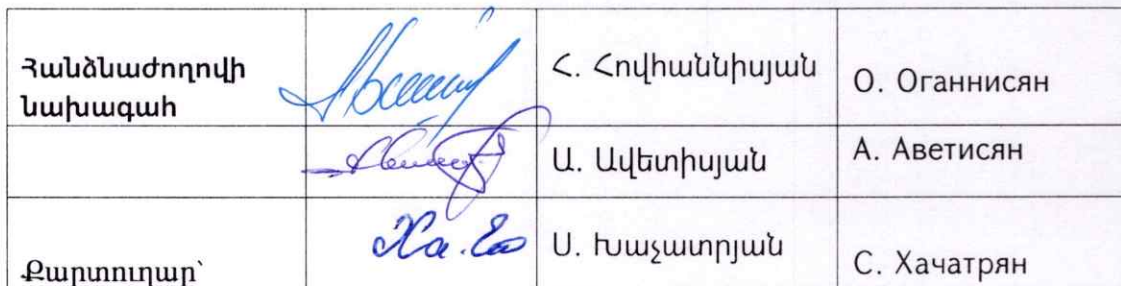 Հանձնաժողովի
նախագահ
Հ. Հովհաննիսյան
О. Оганнисян
Ա. Ավետիսյան
А. Аветисян
Քարտուղար՝
Ս. Խաչատրյան
С. Хачатрян